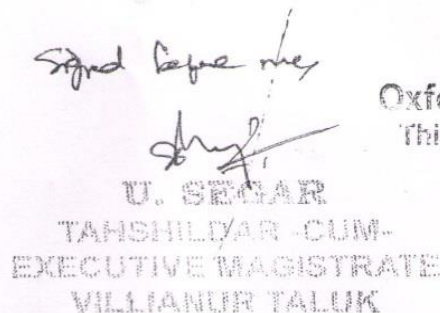 Signed before me,
Oxfo
Thi
U. SEGAR
TAHSHILDAR -CUM-
EXECUTIVE MAGISTRATE
VILLIANUR TALUK